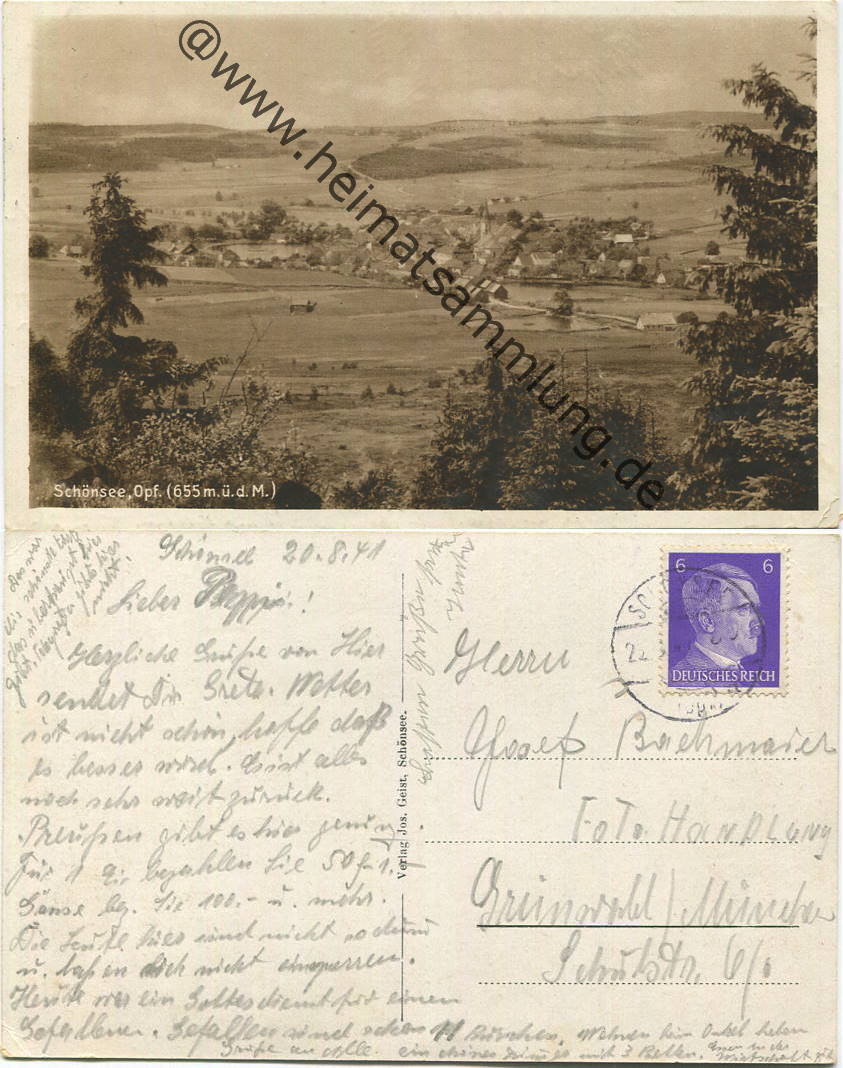 @www.heimatsammlung.de
Schönsee, Opf. (655 m.ü.d.M.)
Schönsee 20.8.41
Lieber Peppi!
Herzliche Grüße von Hier
sendet Dir Grete. Wetter
ist nicht schön, hoffe daß
es besser wird. Es ist alles
noch sehr weit zurück.
Preußen gibt es hier genug.
Für 1 Ei bezahlen Sie 50 -1.
Gänse bz. Sie 100.- u. mehr.
Die Leute hier sind nicht so dumm
u. lassen sich nicht einsperren.
Heute war ein Gottesdienst für einen
Gefallenen. Gefallen sind schon 11 Burschen. Wohnen beim Onkel haben
Grüße an alle. ein schönes Zimmer mit 3 Betten. Essen in der
Wirtschaft
Verlag Jos. Geist, Schönsee.
6 6
DEUTSCHES REICH
Herrn
Josef Bachmaier
Foto Handlung
Grünwald/München
Schulstr. 6/0